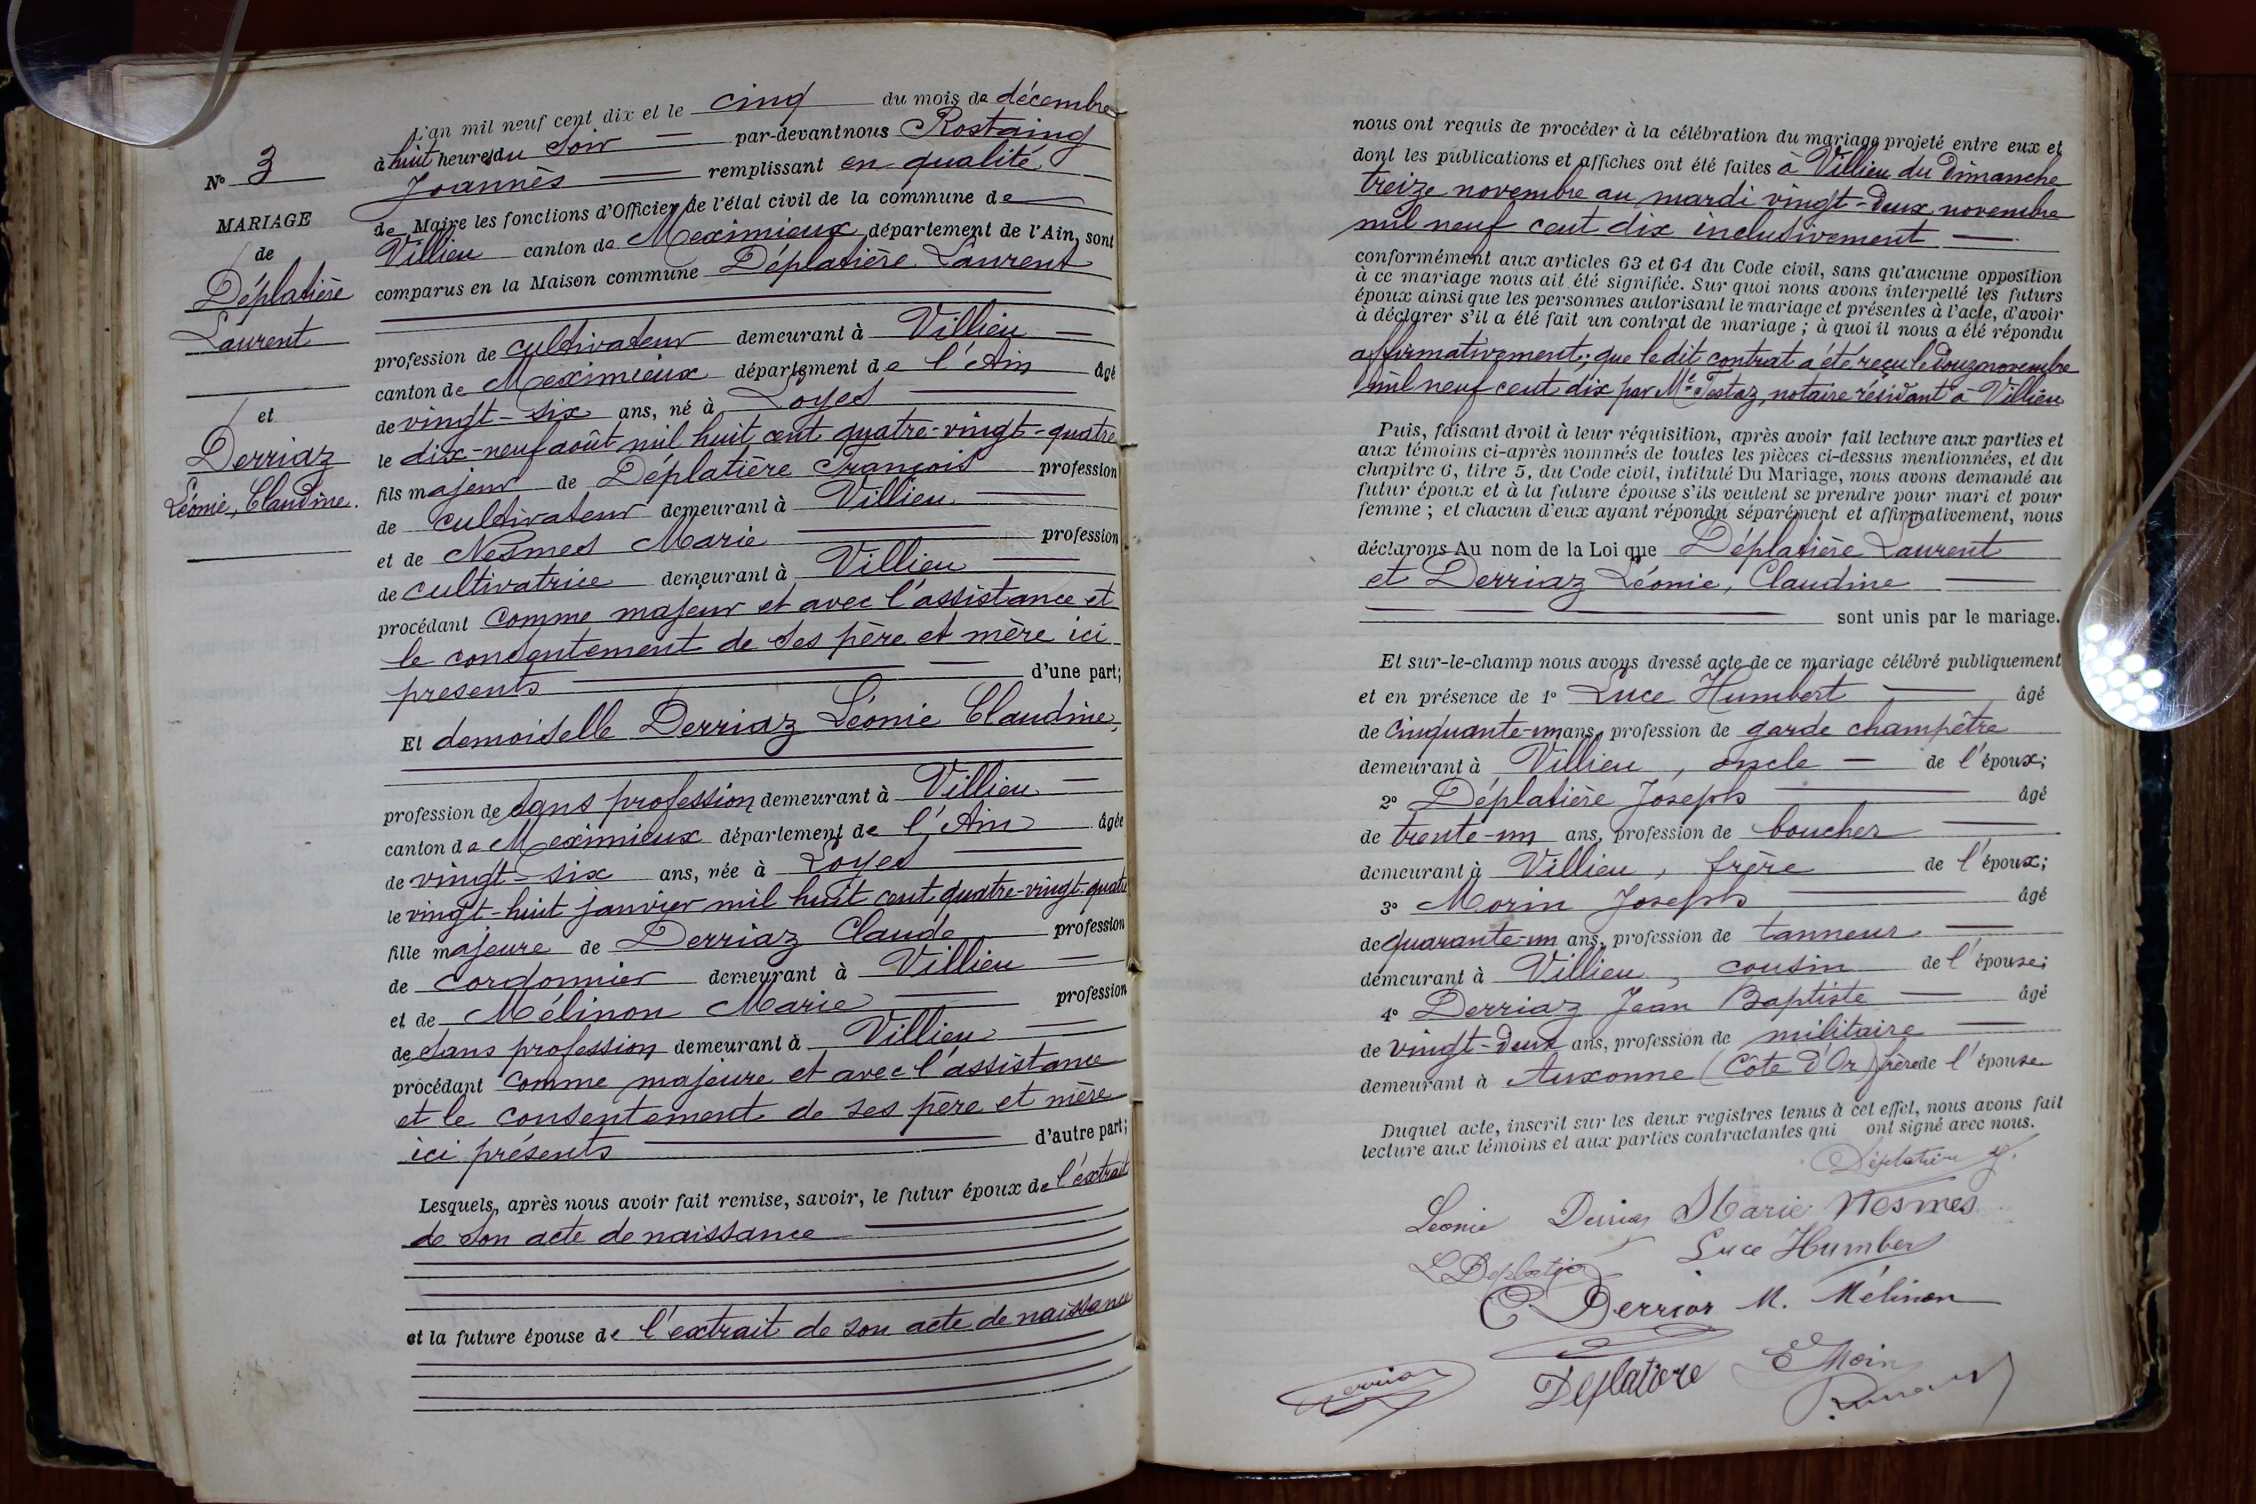 N° 3
MARIAGE
de
Déplatière
Laurent
et
Derriaz
Léonie, Claudine.
L'an mil neuf cent dix et le cinq du mois de décembre
à huit heures du Soir — par-devant nous Rostaing
Joannès — remplissant en qualité
de Maire les fonctions d'Officier de l'état civil de la commune de
Villieu canton de Meximieux département de l'Ain, sont
comparus en la Maison commune Déplatière Laurent
profession de cultivateur demeurant à Villieu —
canton de Meximieux département de l'Ain âgé
de vingt-six ans, né à Loyes
le dix-neuf août mil huit cent quatre-vingt-quatre
fils majeur de Déplatière François profession
de cultivateur demeurant à Villieu
et de Nesmes Marie profession
de cultivatrice demeurant à Villieu
procédant comme majeur et avec l'assistance et
le consentement de ses père et mère ici
presents — d'une part;
Et demoiselle Derriaz Léonie Claudine,
profession de sans profession demeurant à Villieu —
canton de Meximieux département de l'Ain âgée
de vingt-six ans, née à Loyes
le vingt-huit janvier mil huit cent quatre-vingt-quatre
fille majeure de Derriaz Claude profession
de cordonnier demeurant à Villieu —
et de Mélinon Marie profession
de sans profession demeurant à Villieu
procédant comme majeure et avec l'assistance
et le consentement de ses père et mère
ici présents d'autre part;
Lesquels, après nous avoir fait remise, savoir, le futur époux de l'extrait
de son acte de naissance
et la future épouse de l'extrait de son acte de naissance
nous ont requis de procéder à la célébration du mariage projeté entre eux et
dont les publications et affiches ont été faites à Villieu du Dimanche
treize novembre au mardi vingt-deux novembre
mil neuf cent dix inclusivement —
conformément aux articles 63 et 64 du Code civil, sans qu'aucune opposition
à ce mariage nous ait été signifiée. Sur quoi nous avons interpellé les futurs
époux ainsi que les personnes autorisant le mariage et présentes à l'acte, d'avoir
à déclarer s'il a été fait un contrat de mariage ; à quoi il nous a été répondu
affirmativement; que le dit contrat a été reçu le Douze novembre
mil neuf cent dix par Me Testaz, notaire résidant à Villieu
Puis, faisant droit à leur réquisition, après avoir fait lecture aux parties et
aux témoins ci-après nommés de toutes les pièces ci-dessus mentionnées, et du
chapitre 6, titre 5, du Code civil, intitulé Du Mariage, nous avons demandé au
futur époux et à la future épouse s'ils veulent se prendre pour mari et pour
femme ; et chacun d'eux ayant répondu séparément et affirmativement, nous
déclarons Au nom de la Loi que Déplatière Laurent
et Derriaz Léonie, Claudine
sont unis par le mariage.
Et sur-le-champ nous avons dressé acte de ce mariage célébré publiquement
et en présence de 1° Luce Humbert âgé
de cinquante-un ans, profession de garde champêtre
demeurant à Villieu, oncle — de l'époux;
2° Déplatière Joseph âgé
de trente-un ans, profession de boucher
demeurant à Villieu, frère de l'époux;
3° Morin Joseph âgé
de quarante-un ans, profession de tanneur
demeurant à Villieu, cousin de l'épouse;
4° Derriaz Jean Baptiste âgé
de vingt-deux ans, profession de militaire
demeurant à Auxonne (Côte d'Or) frère de l'épouse
Duquel acte, inscrit sur les deux registres tenus à cet effet, nous avons fait
lecture aux témoins et aux parties contractantes qui ont signé avec nous.
Léonie Derriaz Marie Nesmes
Luce Humbert
C. Derriaz M. Mélinon
Déplatière